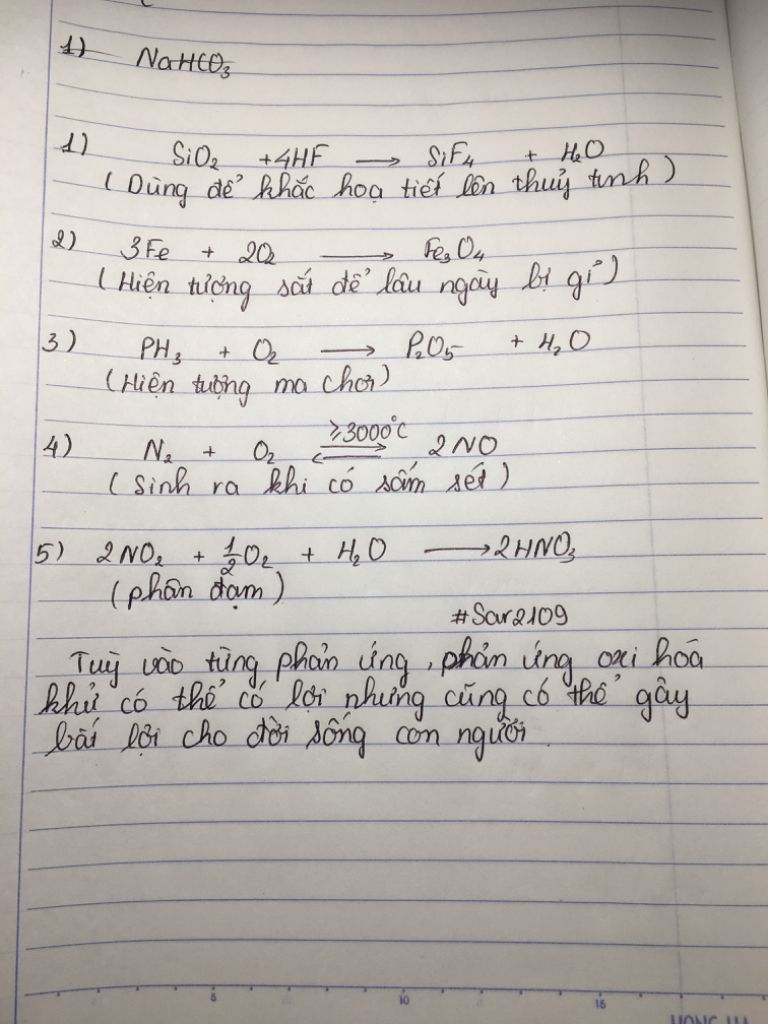 1) NaHCO₃
1) SiO₂ +4HF → SiF₄ + H₂O
(Dùng để khắc hoạ tiết lên thuỷ tinh)
2) 3Fe + 2O₂ → Fe₃O₄
(Hiện tượng sắt để lâu ngày bị gỉ)
3) PH₃ + O₂ → P₂O₅ + H₂O
(Hiện tượng ma chơi)
4) N₂ + O₂ ⇌ 2NO
≥3000°C
(Sinh ra khi có sấm sét)
5) 2NO₂ + 1/2 O₂ + H₂O → 2HNO₃
(phân đạm)
#Sar2109
Tuỳ vào từng phản ứng, phản ứng oxi hoá
khử có thể có lợi nhưng cũng có thể gây
bất lợi cho đời sống con người.
5 10 15